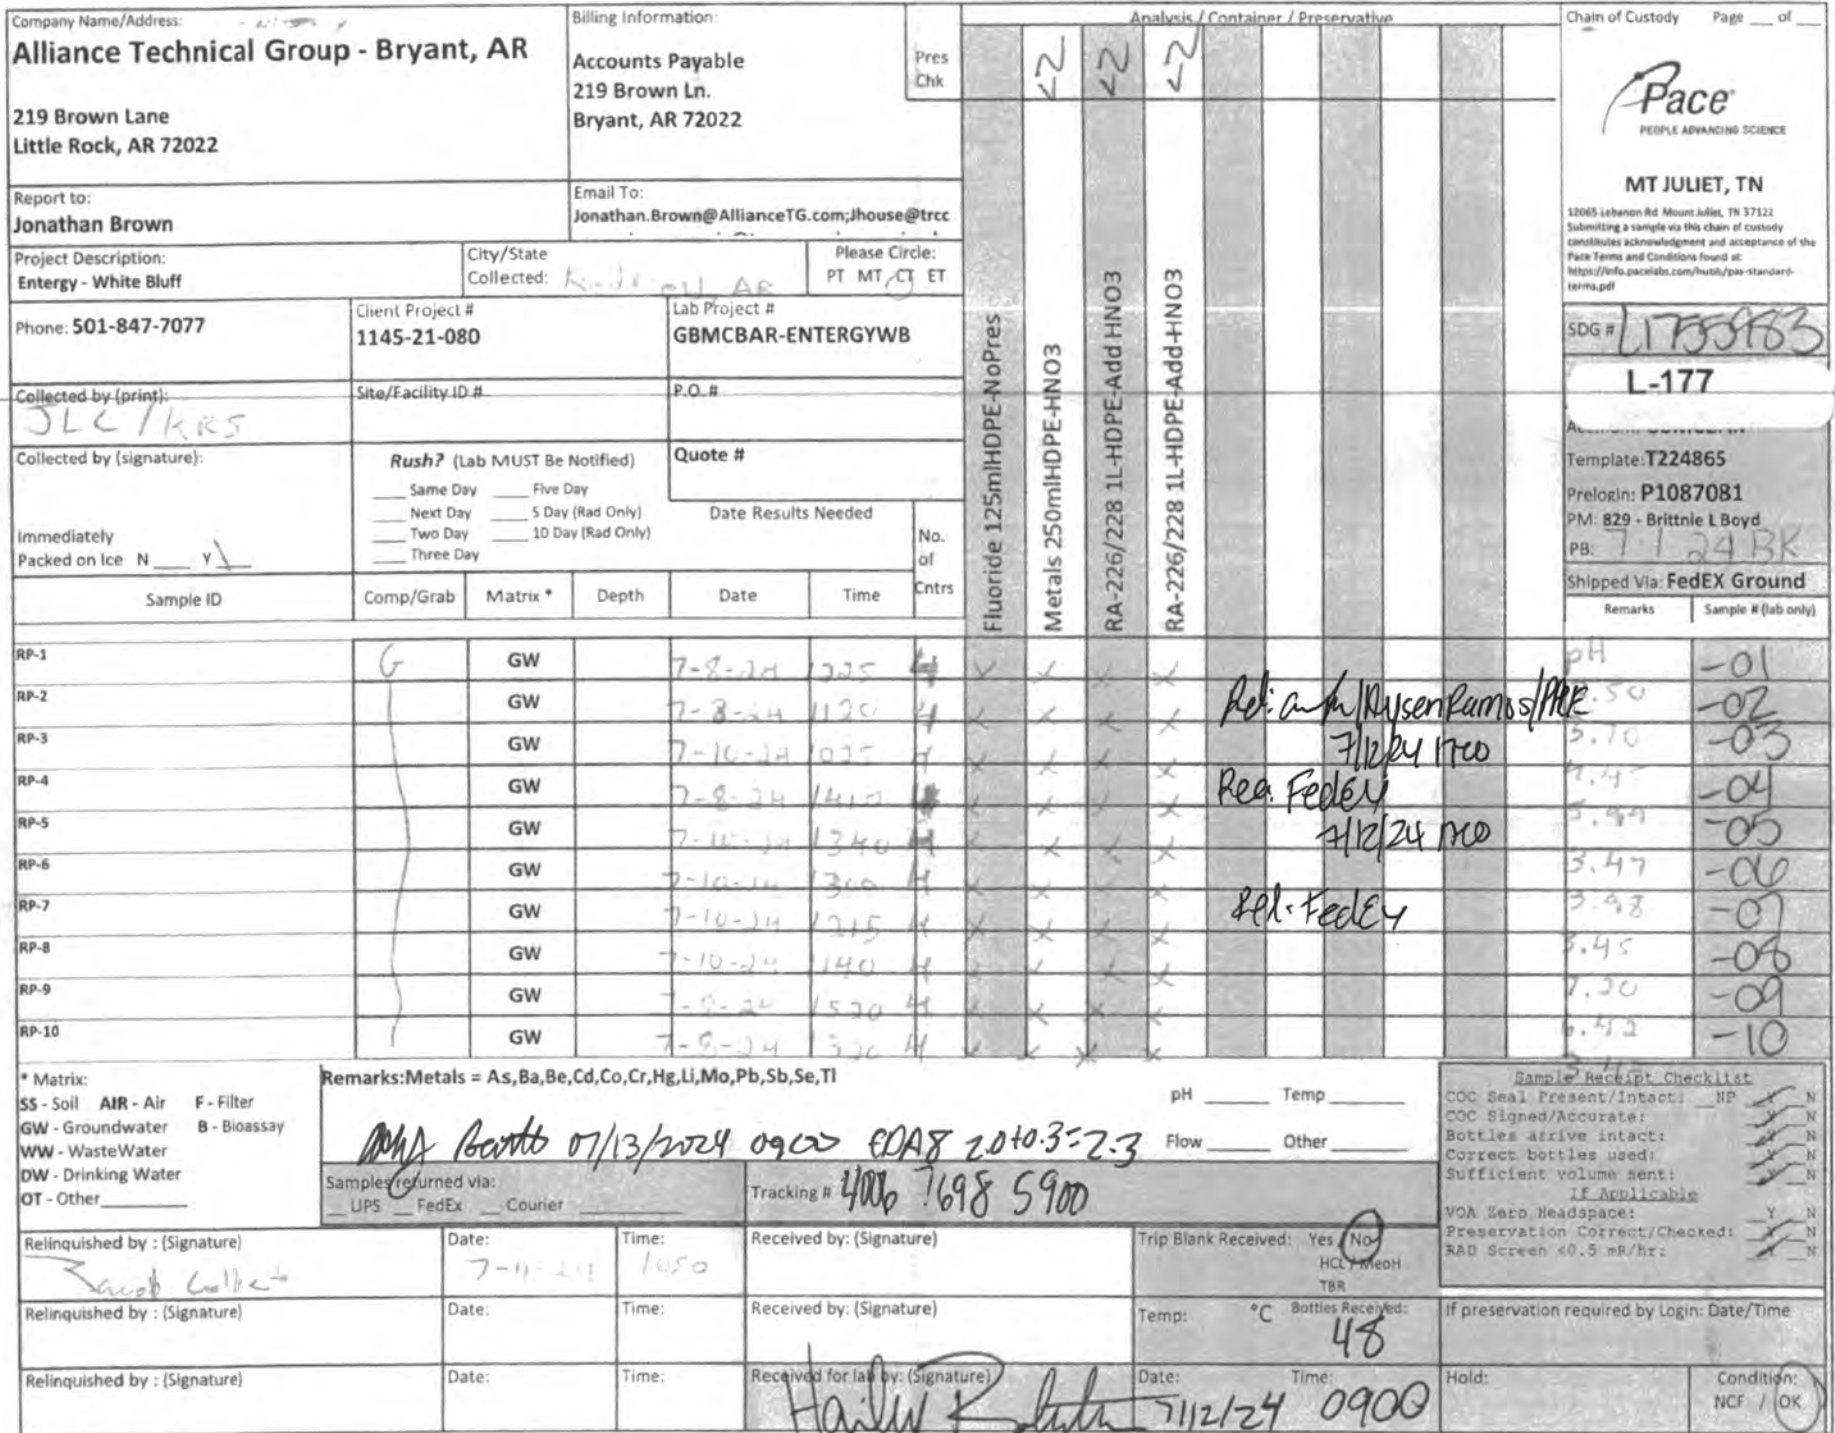 Company Name/Address:
Alliance Technical Group - Bryant, AR
219 Brown Lane
Little Rock, AR 72022
Billing Information:
Accounts Payable
219 Brown Ln.
Bryant, AR 72022
Pres
Chk
Analysis / Container / Preservative
<2 <2 <2
Chain of Custody Page ___ of ___
Pace
PEOPLE ADVANCING SCIENCE
MT JULIET, TN
12065 Lebanon Rd Mount Juliet, TN 37122
Submitting a sample via this chain of custody
constitutes acknowledgment and acceptance of the
Pace Terms and Conditions found at:
https://info.pacelabs.com/hubfs/pas-standard-
terms.pdf
Report to:
Jonathan Brown
Email To:
Jonathan.Brown@AllianceTG.com;Jhouse@trcc
Project Description:
Entergy - White Bluff
City/State
Collected: AR
Please Circle:
PT MT CT ET
Phone: 501-847-7077
Client Project #
1145-21-080
Lab Project #
GBMCBAR-ENTERGYWB
Collected by (print):
JLC/KRS
Site/Facility ID #
P.O. #
Collected by (signature):
Rush? (Lab MUST Be Notified)
___ Same Day ___ Five Day
___ Next Day ___ 5 Day (Rad Only)
___ Two Day ___ 10 Day (Rad Only)
___ Three Day
Quote #
Date Results Needed
Immediately
Packed on Ice N ___ Y ___
No.
of
Cntrs
Fluoride 125mlHDPE-NoPres
Metals 250mlHDPE-HNO3
RA-226/228 1L-HDPE-Add HNO3
RA-226/228 1L-HDPE-Add-HNO3
SDG # L1755983
L-177
Template:T224865
Prelogin: P1087081
PM: 829 - Brittnie L Boyd
PB: 7 1 24 BK
Shipped Via: FedEX Ground
Sample ID Comp/Grab Matrix * Depth Date Time Remarks Sample # (lab only)
RP-1 G GW 7-8-24 1225 4 X X X X pH -01
RP-2 GW 7-8-24 1120 4 X X X X .50 -02
RP-3 GW 7-10-24 1025 4 X X X X 5.70 -03
RP-4 GW 7-8-24 1410 4 X X X X -04
RP-5 GW 7-10-24 1340 4 X X X X 5.99 -05
RP-6 GW 7-10-24 1300 4 X X X X 3.47 -06
RP-7 GW 7-10-24 1215 4 X X X X 3.98 -07
RP-8 GW 7-10-24 1140 4 X X X X 3.45 -08
RP-9 GW 7-8-24 1520 4 X X X X 7.20 -09
RP-10 GW 7-8-24 1320 4 X X X X 6.42 -10
Rel: Aysen Ramos/PACE
7/12/24 1700
Rec: FedEx
7/12/24 1700
Rel: FedEx
* Matrix:
SS - Soil AIR - Air F - Filter
GW - Groundwater B - Bioassay
WW - WasteWater
DW - Drinking Water
OT - Other
Remarks:Metals = As,Ba,Be,Cd,Co,Cr,Hg,Li,Mo,Pb,Sb,Se,Tl
07/13/2024 0900 EDA8 2.0+0.3=2.3
pH ___ Temp ___
Flow ___ Other ___
Samples returned via:
__ UPS __ FedEx __ Courier
Tracking # 4006 7698 5900
Sample Receipt Checklist
COC Seal Present/Intact: __NP Y N
COC Signed/Accurate: Y N
Bottles arrive intact: Y N
Correct bottles used: Y N
Sufficient volume sent: Y N
If Applicable
VOA Zero Headspace: Y N
Preservation Correct/Checked: Y N
RAD Screen <0.5 mR/hr: Y N
Relinquished by : (Signature)
Jacob
Date:
Time:
1050
Received by: (Signature)
Trip Blank Received: Yes / No
HCL / MeoH
TBR
Relinquished by : (Signature)
Date:
Time:
Received by: (Signature)
Temp: °C
Bottles Received:
48
If preservation required by Login: Date/Time
Relinquished by : (Signature)
Date:
Time:
Received for lab by: (Signature)
Date:
7/12/24
Time:
0900
Hold:
Condition:
NCF / OK